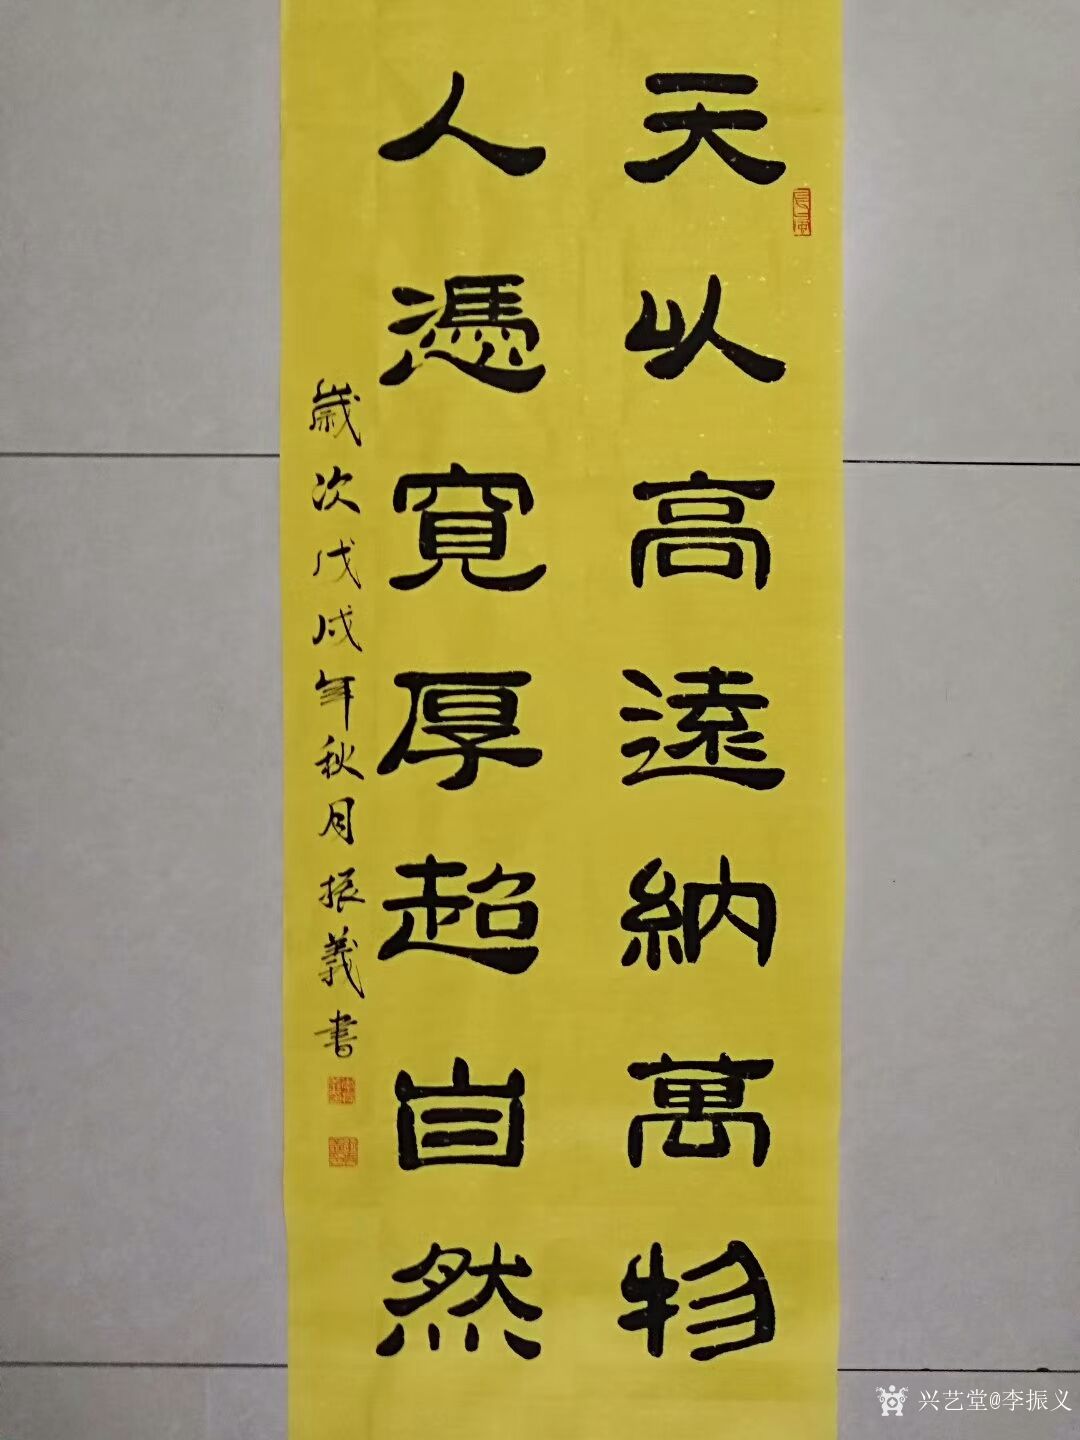 天以高遠納萬物
人憑寬厚超自然
歲次戊戌年秋月振義書
兴艺堂@李振义